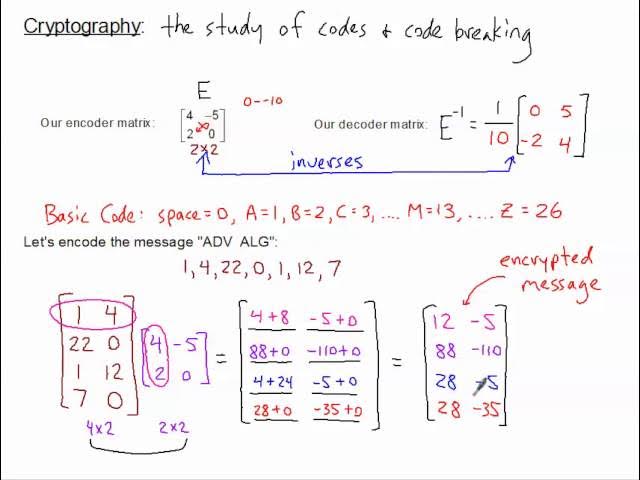 Cryptography: the study of codes & code breaking
E
0--10
Our encoder matrix: [4 -5
2 0]
2x2
Our decoder matrix: E^-1 = 1/10 [0 5
-2 4]
inverses
Basic Code: space=0, A=1, B=2, C=3, .... M=13, .... Z=26
Let's encode the message "ADV ALG":
1, 4, 22, 0, 1, 12, 7
encrypted
message
[1 4
22 0
1 12
7 0]
4x2
[4 -5
2 0]
2x2
=
[4+8 -5+0
88+0 -110+0
4+24 -5+0
28+0 -35+0]
=
[12 -5
88 -110
28 -5
28 -35]